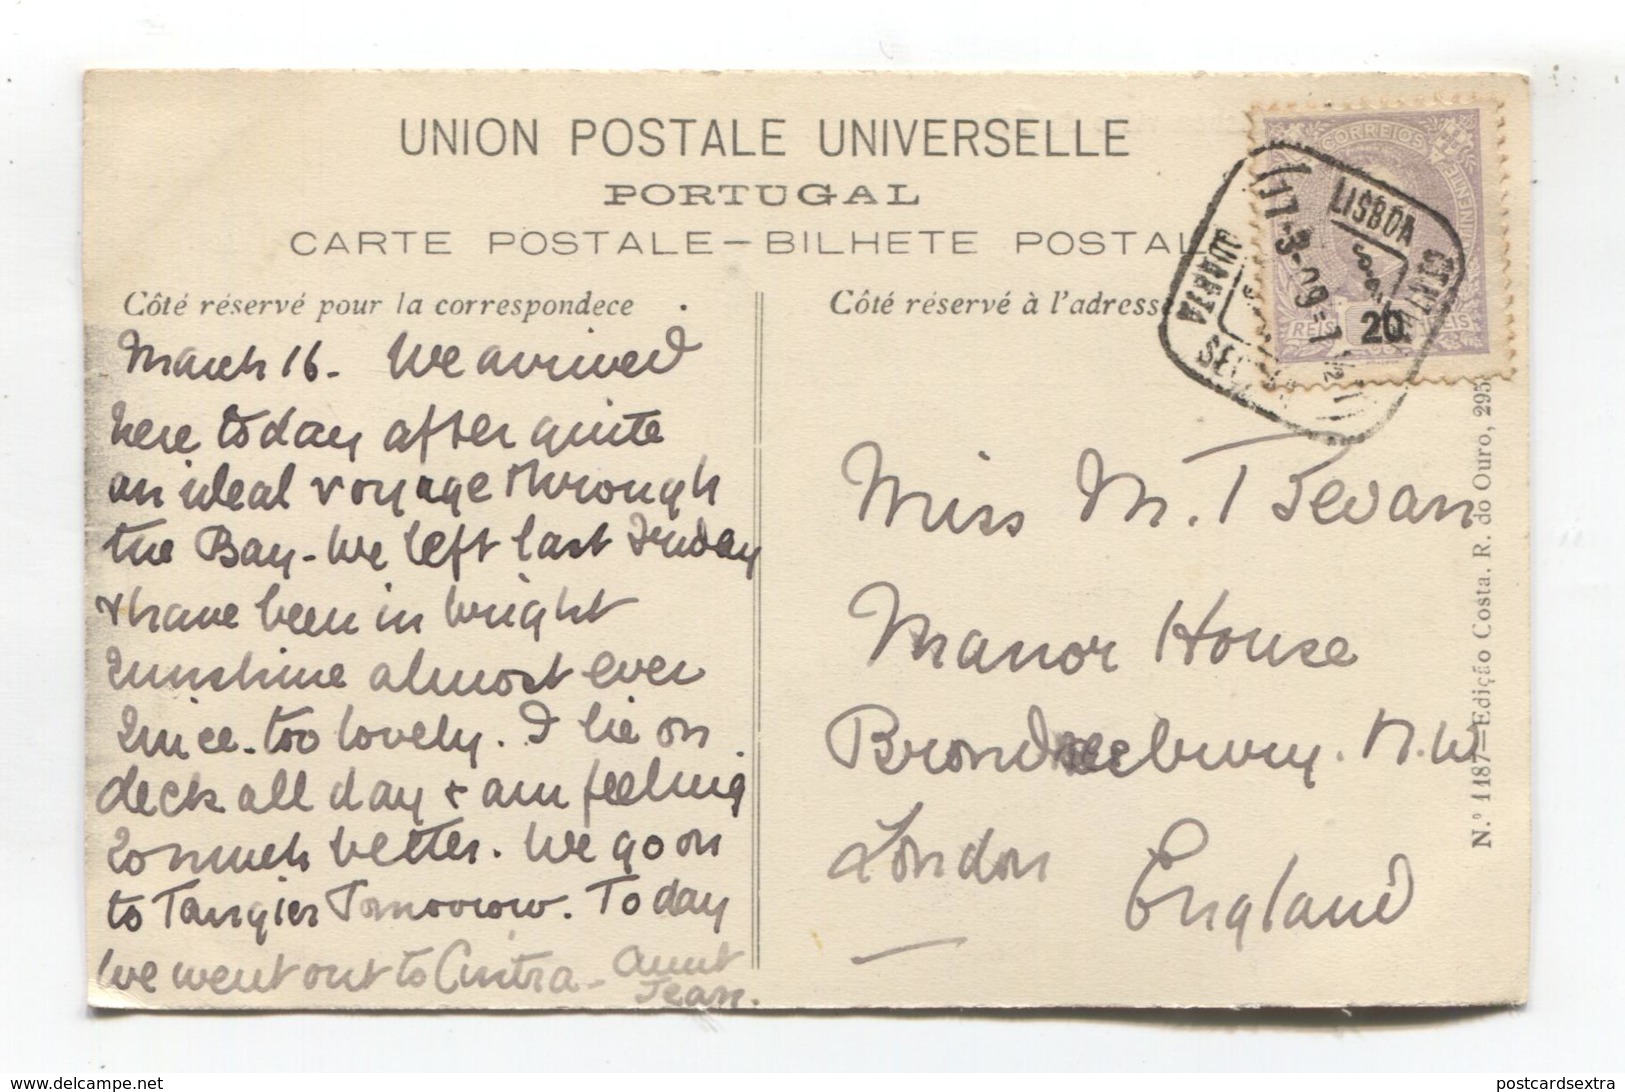 UNION POSTALE UNIVERSELLE
PORTUGAL
CARTE POSTALE—BILHETE POSTAL
Côté réservé pour la correspondece
March 16. We arrived
here today after quite
an ideal voyage through
the Bay - We left last Friday
& have been in bright
sunshine almost ever
since. too lovely. I lie on
deck all day & am feeling
so much better. We go on
to Tangier Tomorrow. Today
we went out to Cintra - Aunt
Jean.
Côté réservé à l'adresse
CORREIOS
REIS 20 REIS
LISBOA CENTRAL
QUARTA SEC
17-3-09
Miss M. T Bevan
Manor House
Brondesbury. N.W
London
England
N.º 1187—Edição Costa. R. do Ouro, 295
www.delcampe.net
postcardsextra